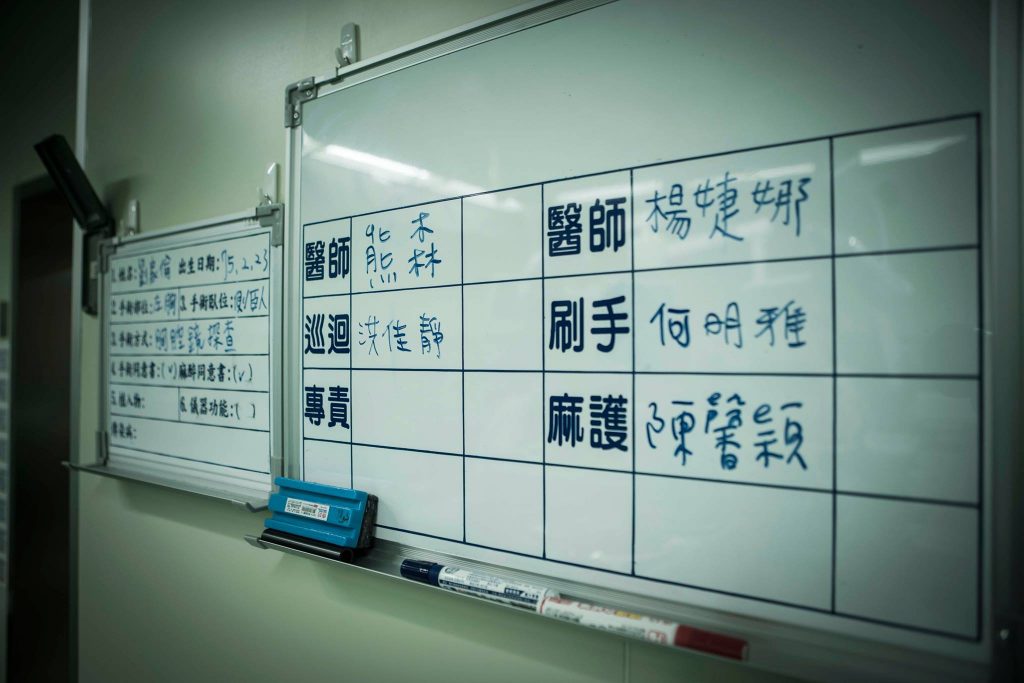 1. 姓名:劉家倫 出生日期:75.2.23
2. 手術部位:左胸 3. 手術臥位:側臥
3. 手術方式:胸腔鏡探查
4. 手術同意書:(v) 麻醉同意書:(v)
5. 植入物: 6. 儀器功能:( )
傳染病:
醫師 熊森 醫師 楊婕娜
巡迴 洪佳靜 刷手 何明雅
專責 麻護 陳馨穎